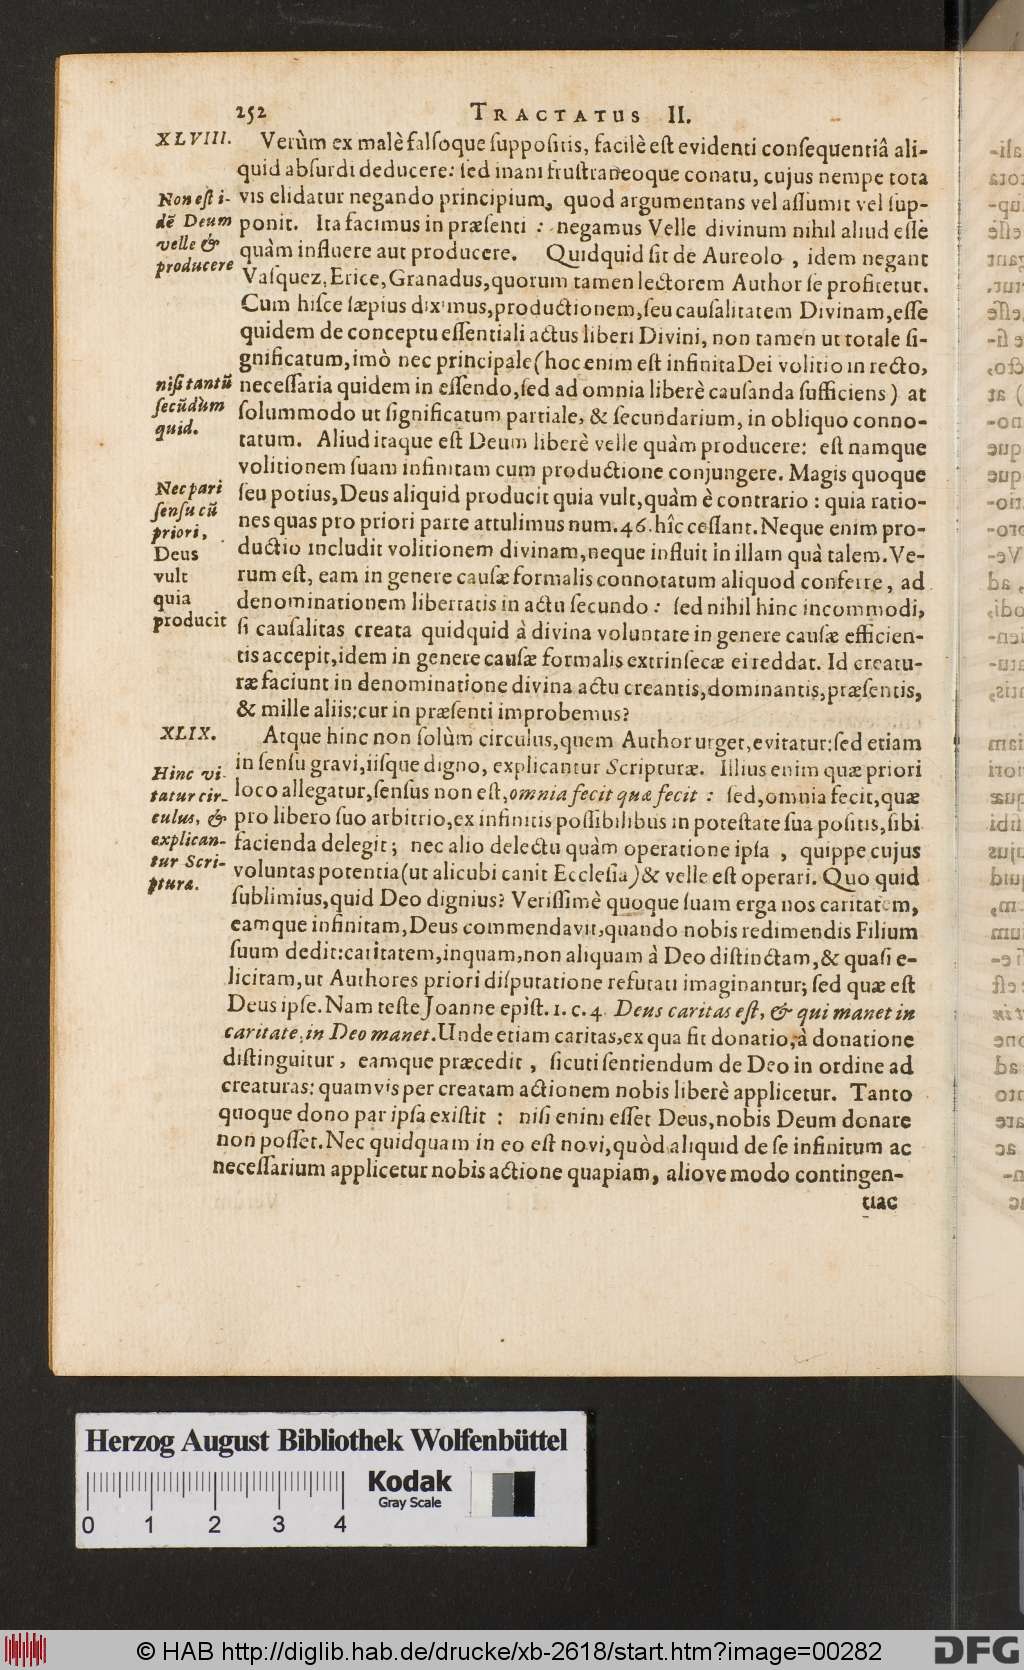 252 TRACTATUS II.
XLVIII. Verùm ex malè falſoque ſuppoſitis, facilè eſt evidenti conſequentiâ ali-
quid abſurdi deducere: ſed inani fruſtraneoque conatu, cujus nempe tota
vis elidatur negando principium, quod argumentans vel aſſumit vel ſup-
ponit. Ita facimus in præſenti : negamus Velle divinum nihil aliud eſſe
quàm influere aut producere. Quidquid ſit de Aureolo , idem negant
Vaſquez, Erice, Granadus, quorum tamen lectorem Author ſe profitetur.
Cum hiſce ſæpius diximus, productionem, ſeu cauſalitatem Divinam, eſſe
quidem de conceptu eſſentiali actus liberi Divini, non tamen ut totale ſi-
gnificatum, imò nec principale (hoc enim eſt infinita Dei volitio in recto,
neceſſaria quidem in eſſendo, ſed ad omnia liberè cauſanda ſufficiens ) at
ſolummodo ut ſignificatum partiale, & ſecundarium, in obliquo conno-
tatum. Aliud itaque eſt Deum liberè velle quàm producere: eſt namque
volitionem ſuam infinitam cum productione conjungere. Magis quoque
ſeu potius, Deus aliquid producit quia vult, quàm è contrario : quia ratio-
nes quas pro priori parte attulimus num. 46. hîc ceſſant. Neque enim pro-
ductio includit volitionem divinam, neque influit in illam quà talem. Ve-
rum eſt, eam in genere cauſæ formalis connotatum aliquod conferre, ad
denominationem libertatis in actu ſecundo : ſed nihil hinc incommodi,
ſi cauſalitas creata quidquid à divina voluntate in genere cauſæ efficien-
tis accepit, idem in genere cauſæ formalis extrinſecæ ei reddat. Id creatu-
ræ faciunt in denominatione divina actu creantis, dominantis, præſentis,
& mille aliis: cur in præſenti improbemus?
Non eſt i-
dẽ Deum
velle &
producere
niſi tantũ
ſecũdùm
quid.
Nec pari
ſenſu cũ
priori,
Deus
vult
quia
producit
XLIX. Atque hinc non ſolùm circulus, quem Author urget, evitatur: ſed etiam
in ſenſu gravi, iiſque digno, explicantur Scripturæ. Illius enim quæ priori
loco allegatur, ſenſus non eſt, omnia fecit quæ fecit : ſed, omnia fecit, quæ
pro libero ſuo arbitrio, ex infinitis poſſibilibus in poteſtate ſua poſitis, ſibi
facienda delegit; nec alio delectu quàm operatione ipſa , quippe cujus
voluntas potentia (ut alicubi canit Eccleſia) & velle eſt operari. Quo quid
ſublimius, quid Deo dignius? Veriſſimè quoque ſuam erga nos caritatem,
eamque infinitam, Deus commendavit, quando nobis redimendis Filium
ſuum dedit: caritatem, inquam, non aliquam à Deo diſtinctam, & quaſi e-
licitam, ut Authores priori diſputatione refutati imaginantur; ſed quæ eſt
Deus ipſe. Nam teſte Joanne epiſt. 1. c. 4. Deus caritas eſt, & qui manet in
caritate, in Deo manet. Unde etiam caritas, ex qua fit donatio, à donatione
diſtinguitur , eamque præcedit , ſicuti ſentiendum de Deo in ordine ad
creaturas: quamvis per creatam actionem nobis liberè applicetur. Tanto
quoque dono par ipſa exiſtit : niſi enim eſſet Deus, nobis Deum donare
non poſſet. Nec quidquam in eo eſt novi, quòd aliquid de ſe infinitum ac
neceſſarium applicetur nobis actione quapiam, aliove modo contingen-
tiae
Hinc vi-
tatur cir-
culus, &
explican-
tur Scri-
ptura.
Herzog August Bibliothek Wolfenbüttel
Kodak
Gray Scale
0 1 2 3 4
© HAB http://diglib.hab.de/drucke/xb-2618/start.htm?image=00282
DFG